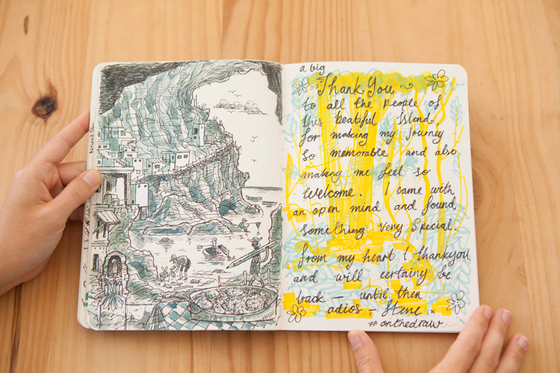 a big
Thank You
to all the people of
this beatiful Island
for making my journey
so memorable and also
making me feel so
welcome. I came with
an open mind and found
something very special.
from my heart I thankyou
and will certainy be
back — until then
adios - Steve
#onthedraw